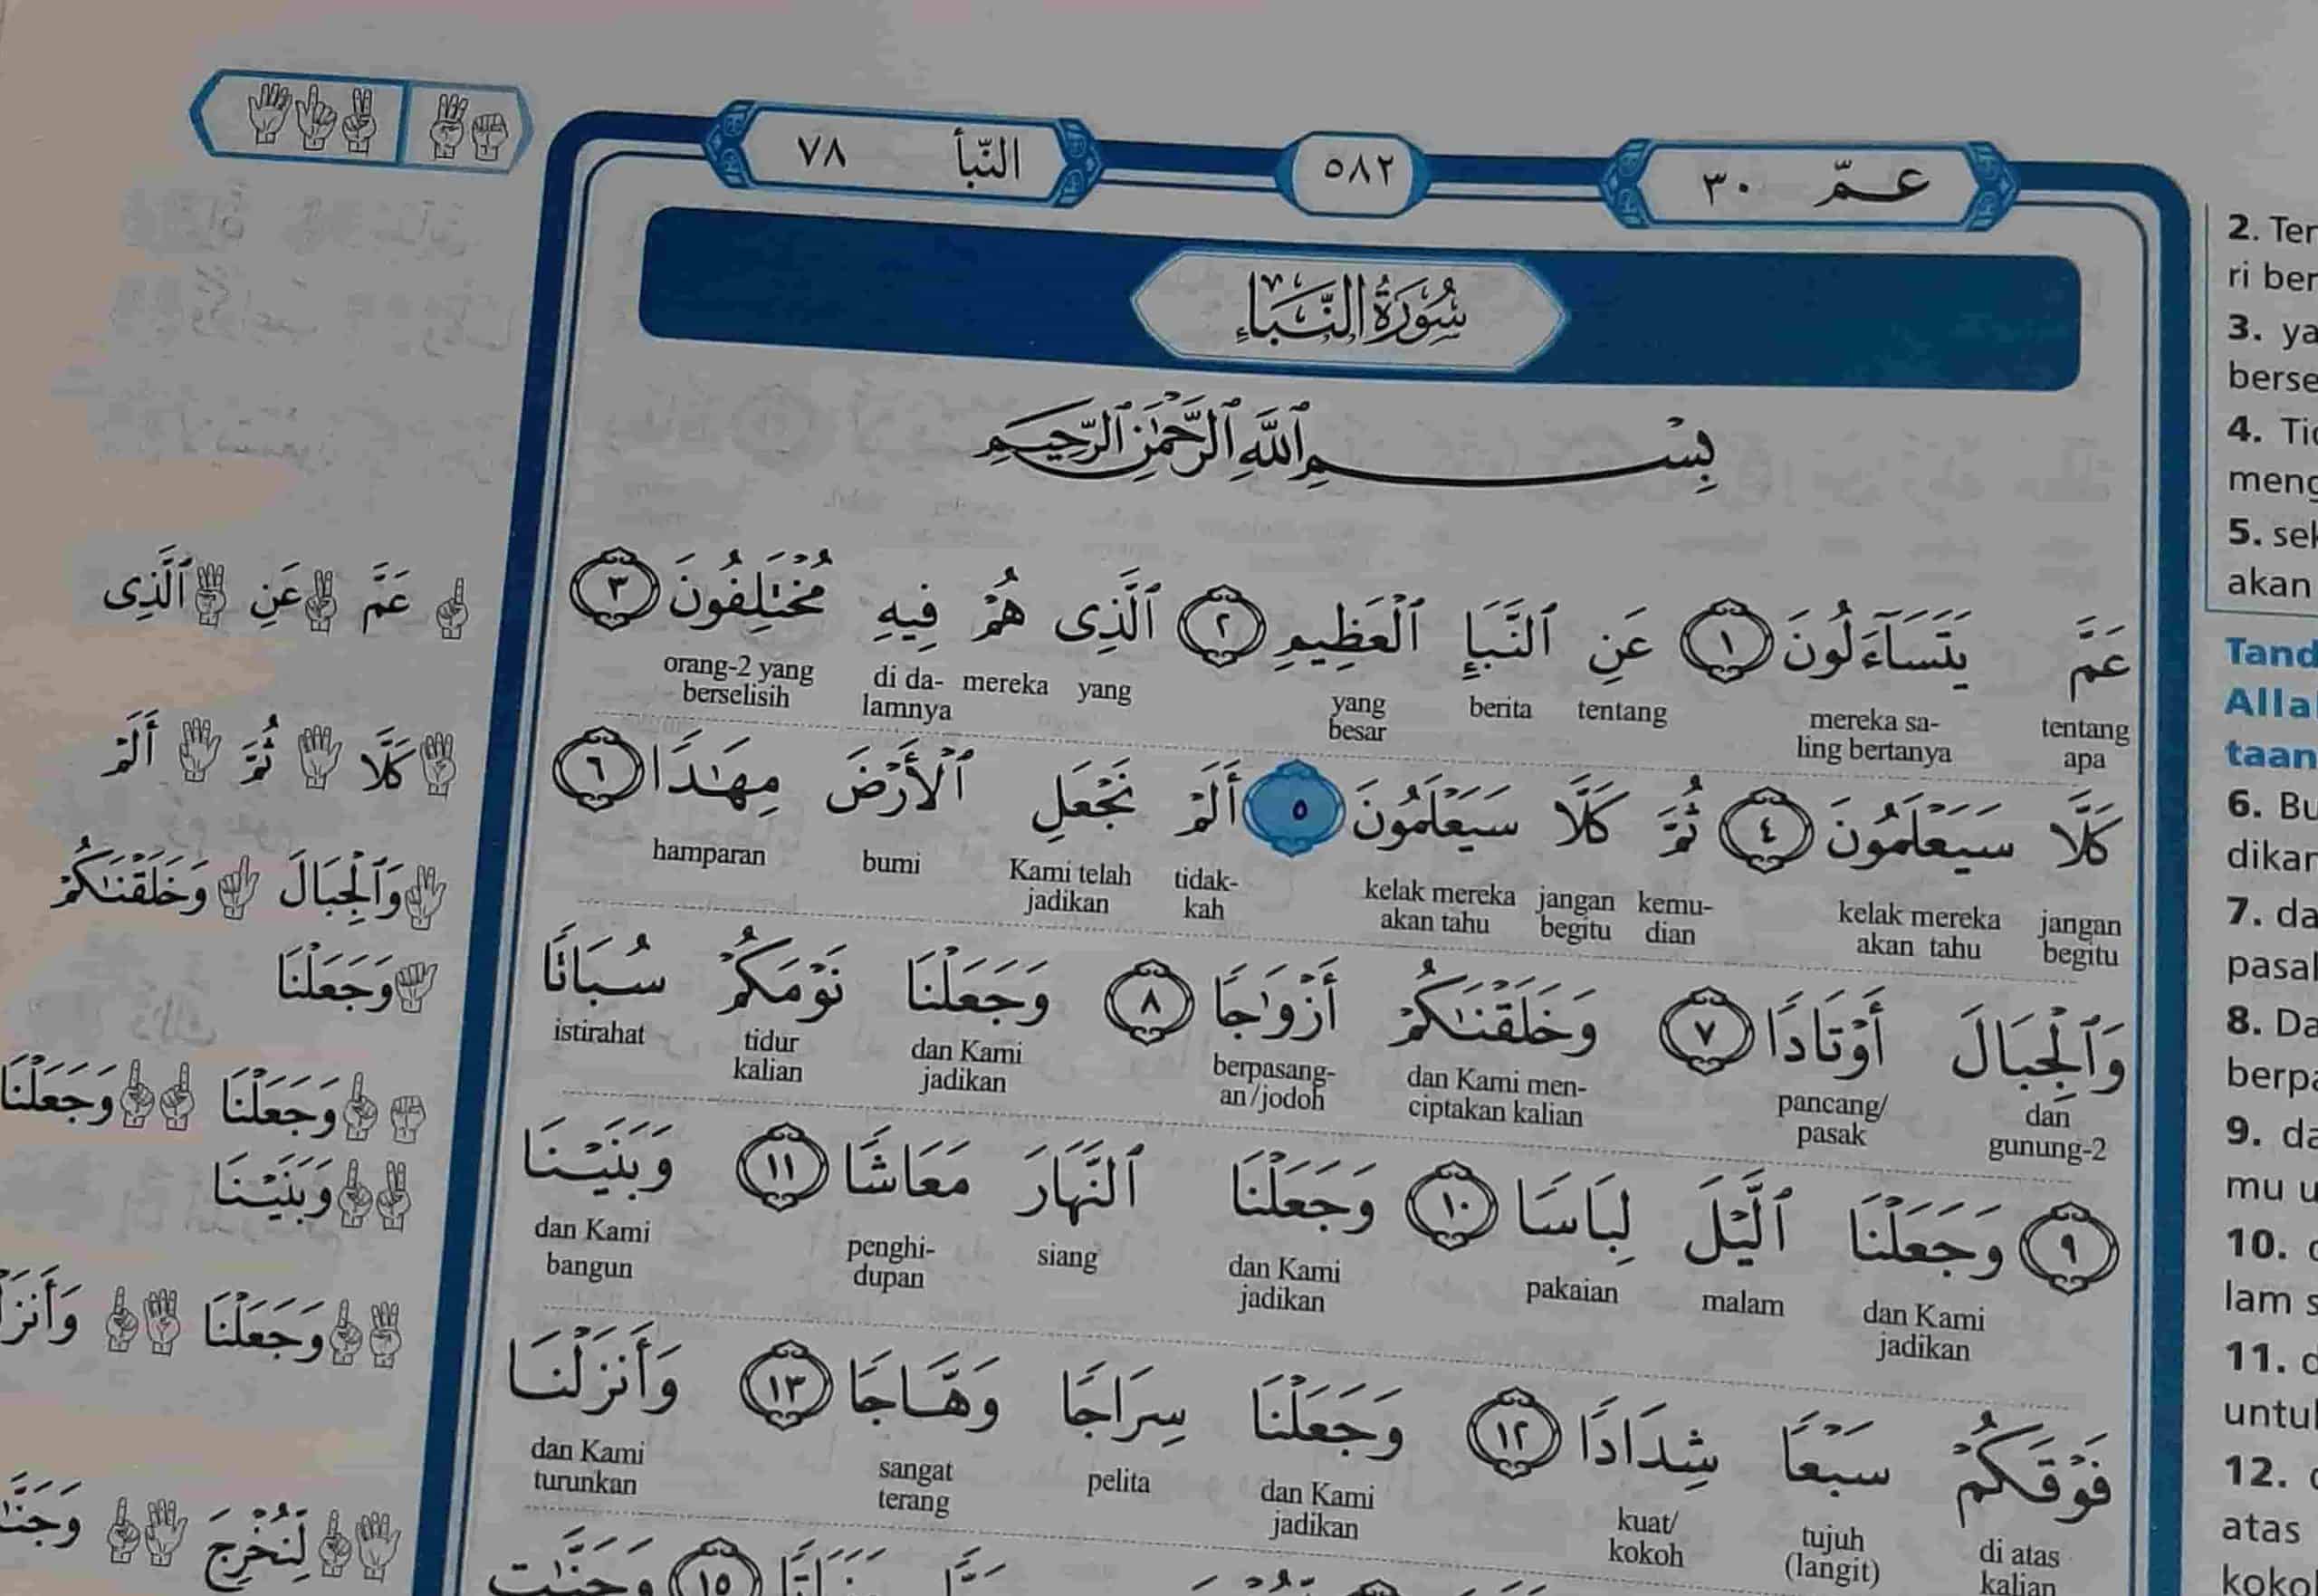 عمّ ٣٠
٥٨٢
النّبأ ٧٨
سُورَةُ النَّبَاءِ
بِسْمِ ٱللَّهِ ٱلرَّحْمَٰنِ ٱلرَّحِيمِ
عَمَّ يَتَسَآءَلُونَ ١ عَنِ ٱلنَّبَإِ ٱلْعَظِيمِ ٢ ٱلَّذِى هُمْ فِيهِ مُخْتَلِفُونَ ٣
tentang apa mereka sa-ling bertanya tentang berita yang besar yang mereka di da-lamnya orang-2 yang berselisih
كَلَّا سَيَعْلَمُونَ ٤ ثُمَّ كَلَّا سَيَعْلَمُونَ ٥ أَلَمْ نَجْعَلِ ٱلْأَرْضَ مِهَٰدًا ٦
jangan begitu kelak mereka akan tahu kemu-dian jangan begitu kelak mereka akan tahu tidak-kah Kami telah jadikan bumi hamparan
وَٱلْجِبَالَ أَوْتَادًا ٧ وَخَلَقْنَٰكُمْ أَزْوَٰجًا ٨ وَجَعَلْنَا نَوْمَكُمْ سُبَاتًا
dan gunung-2 pancang/pasak dan Kami men-ciptakan kalian berpasang-an/jodoh dan Kami jadikan tidur kalian istirahat
٩ وَجَعَلْنَا ٱلَّيْلَ لِبَاسًا ١٠ وَجَعَلْنَا ٱلنَّهَارَ مَعَاشًا ١١ وَبَنَيْنَا
dan Kami jadikan malam pakaian dan Kami jadikan siang penghi-dupan dan Kami bangun
فَوْقَكُمْ سَبْعًا شِدَادًا ١٢ وَجَعَلْنَا سِرَاجًا وَهَّاجًا ١٣ وَأَنزَلْنَا
di atas kalian tujuh (langit) kuat/kokoh dan Kami jadikan pelita sangat terang dan Kami turunkan
١٥
عَمَّ عَنِ ٱلَّذِى
كَلَّا ثُمَّ أَلَمْ
وَٱلْجِبَالَ وَخَلَقْنَٰكُمْ
وَجَعَلْنَا
وَجَعَلْنَا وَجَعَلْنَا
وَبَنَيْنَا
وَجَعَلْنَا
لِّنُخْرِجَ
2.
ri
3.
4.
5.
akan
6.
7.
8.
9.
mu
10.
11.
12.
atas